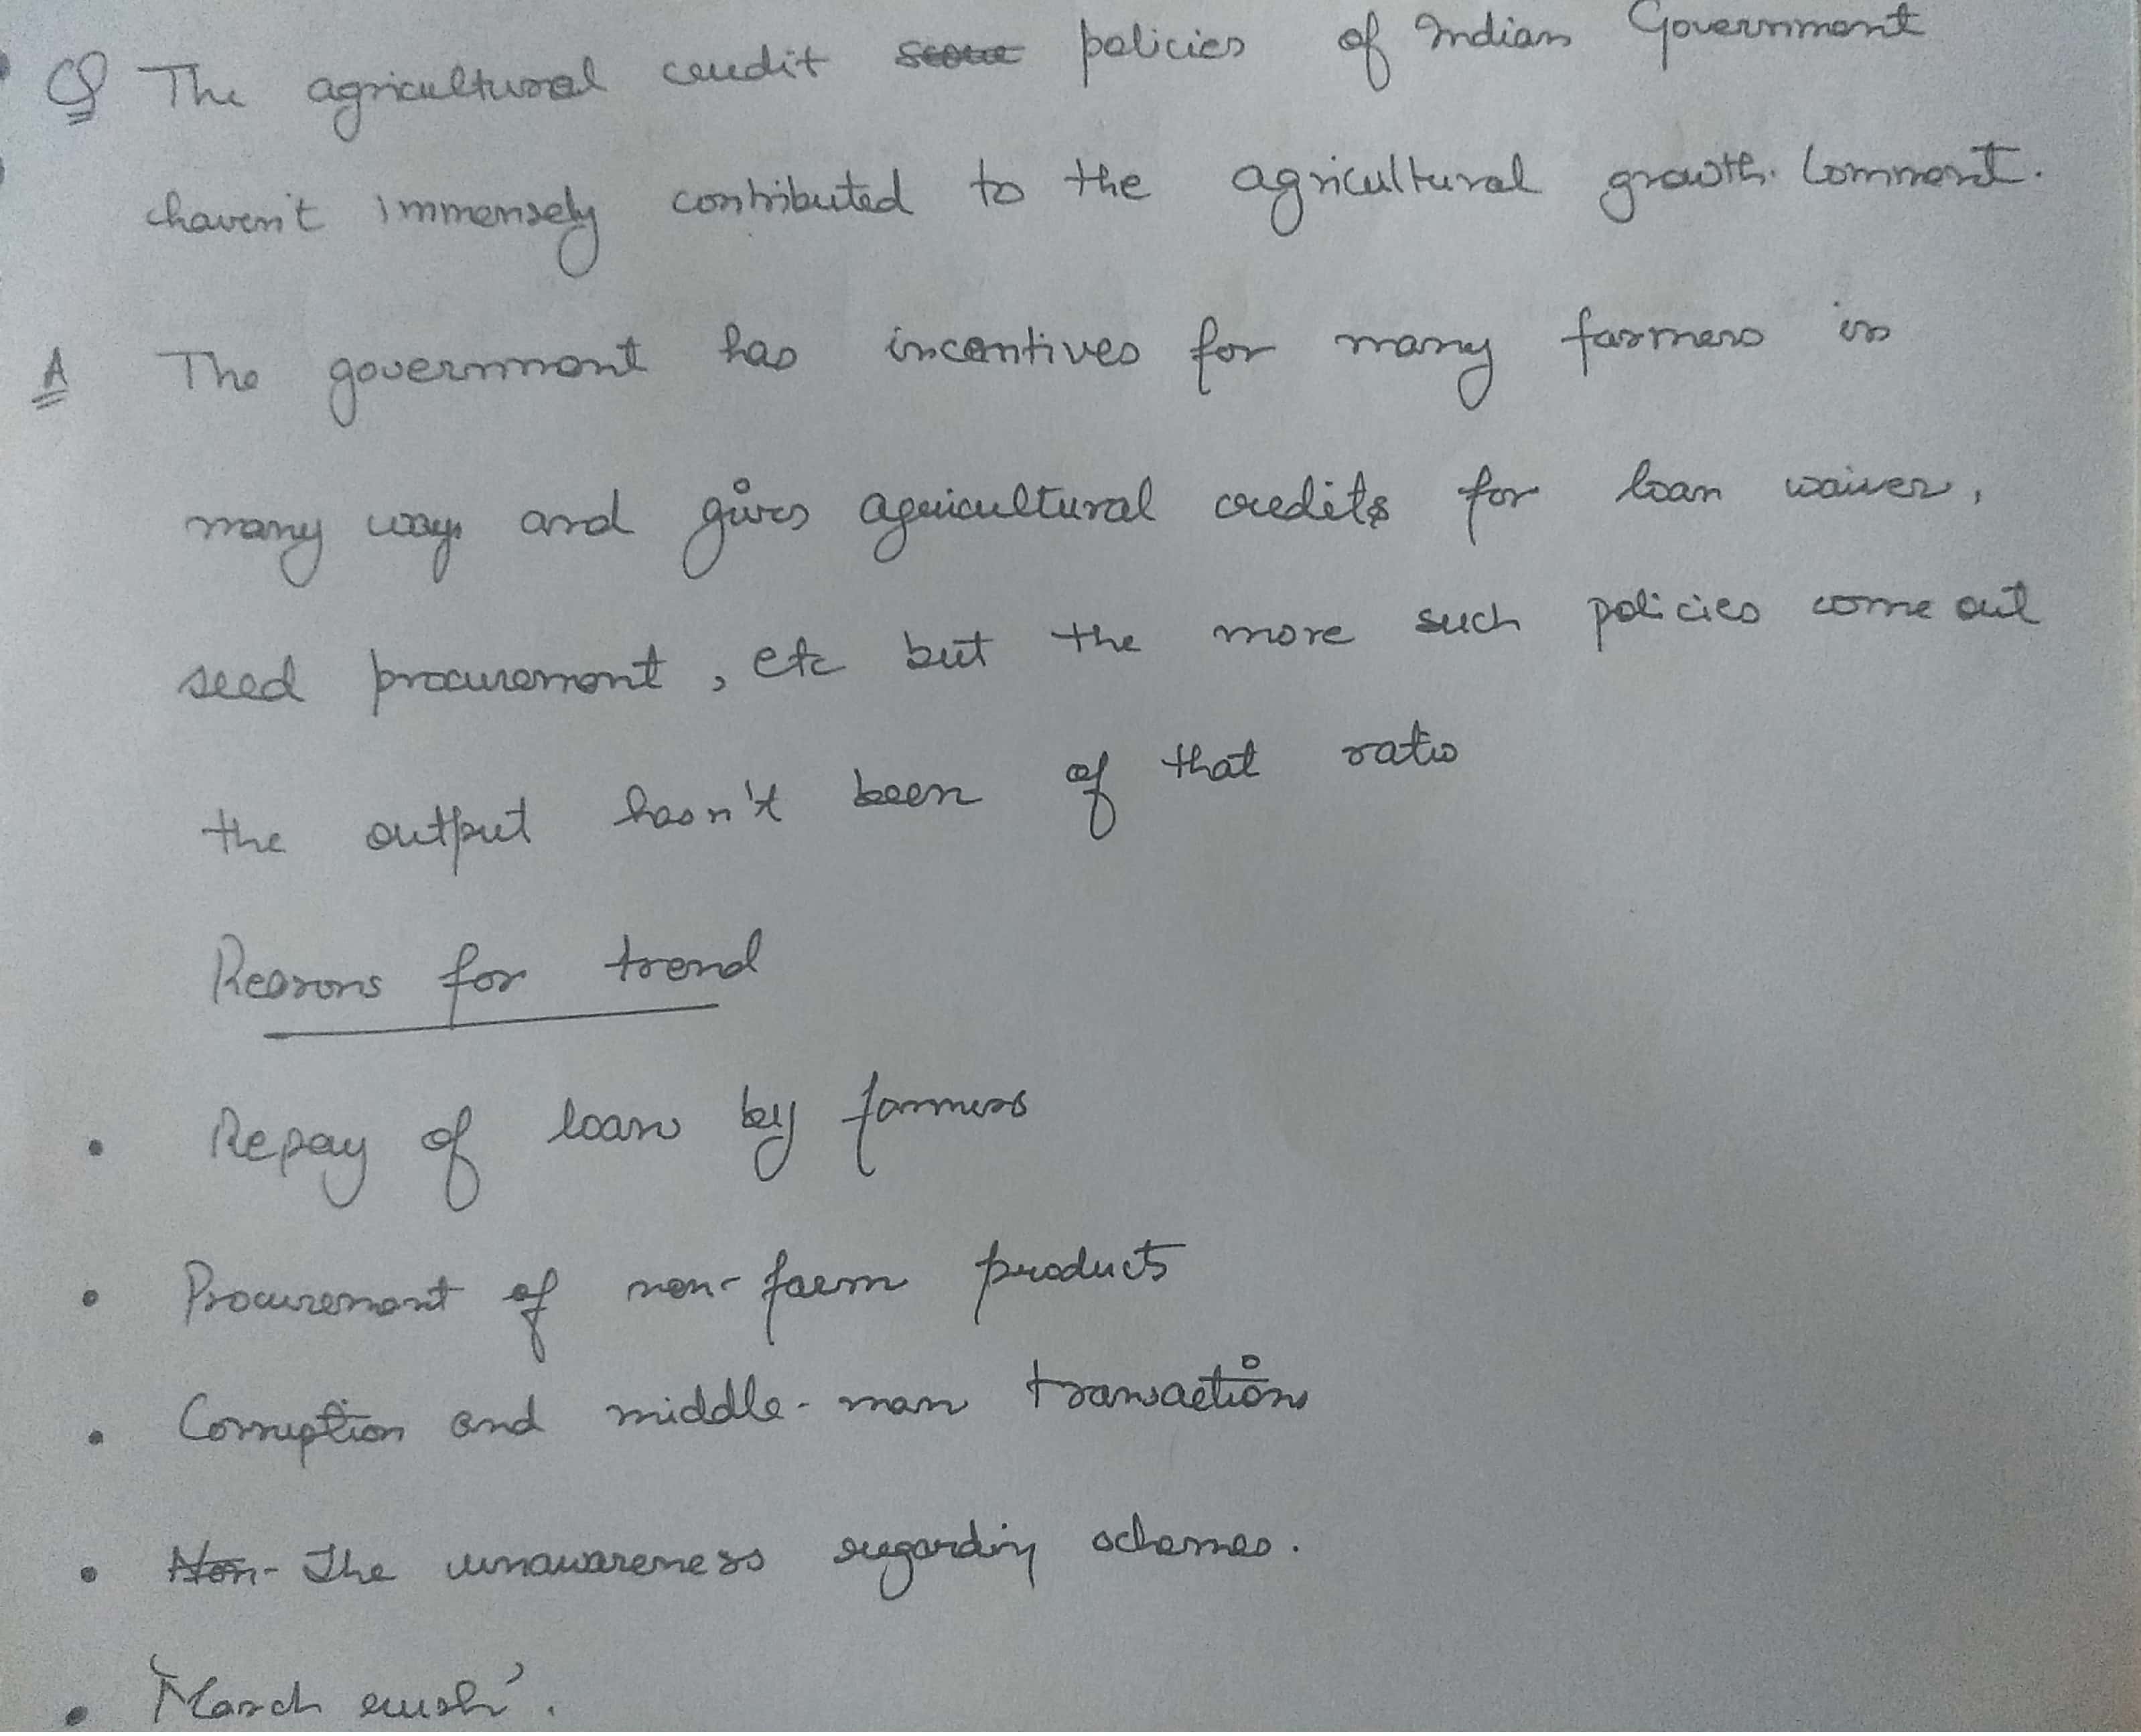 Q The agricultural credit policies of Indian Government
haven't immensely contributed to the agricultural growth. Comment.
A The government has incentives for many farmers in
many ways and gives agricultural credits for loan waiver,
seed procurement, etc but the more such policies come out
the output hasn't been of that ratio
Reasons for trend
• Repay of loan by farmers
• Procurement of non-farm products
• Corruption and middle-man transactions
• Non- The unawareness regarding schemes.
• 'March rush'.